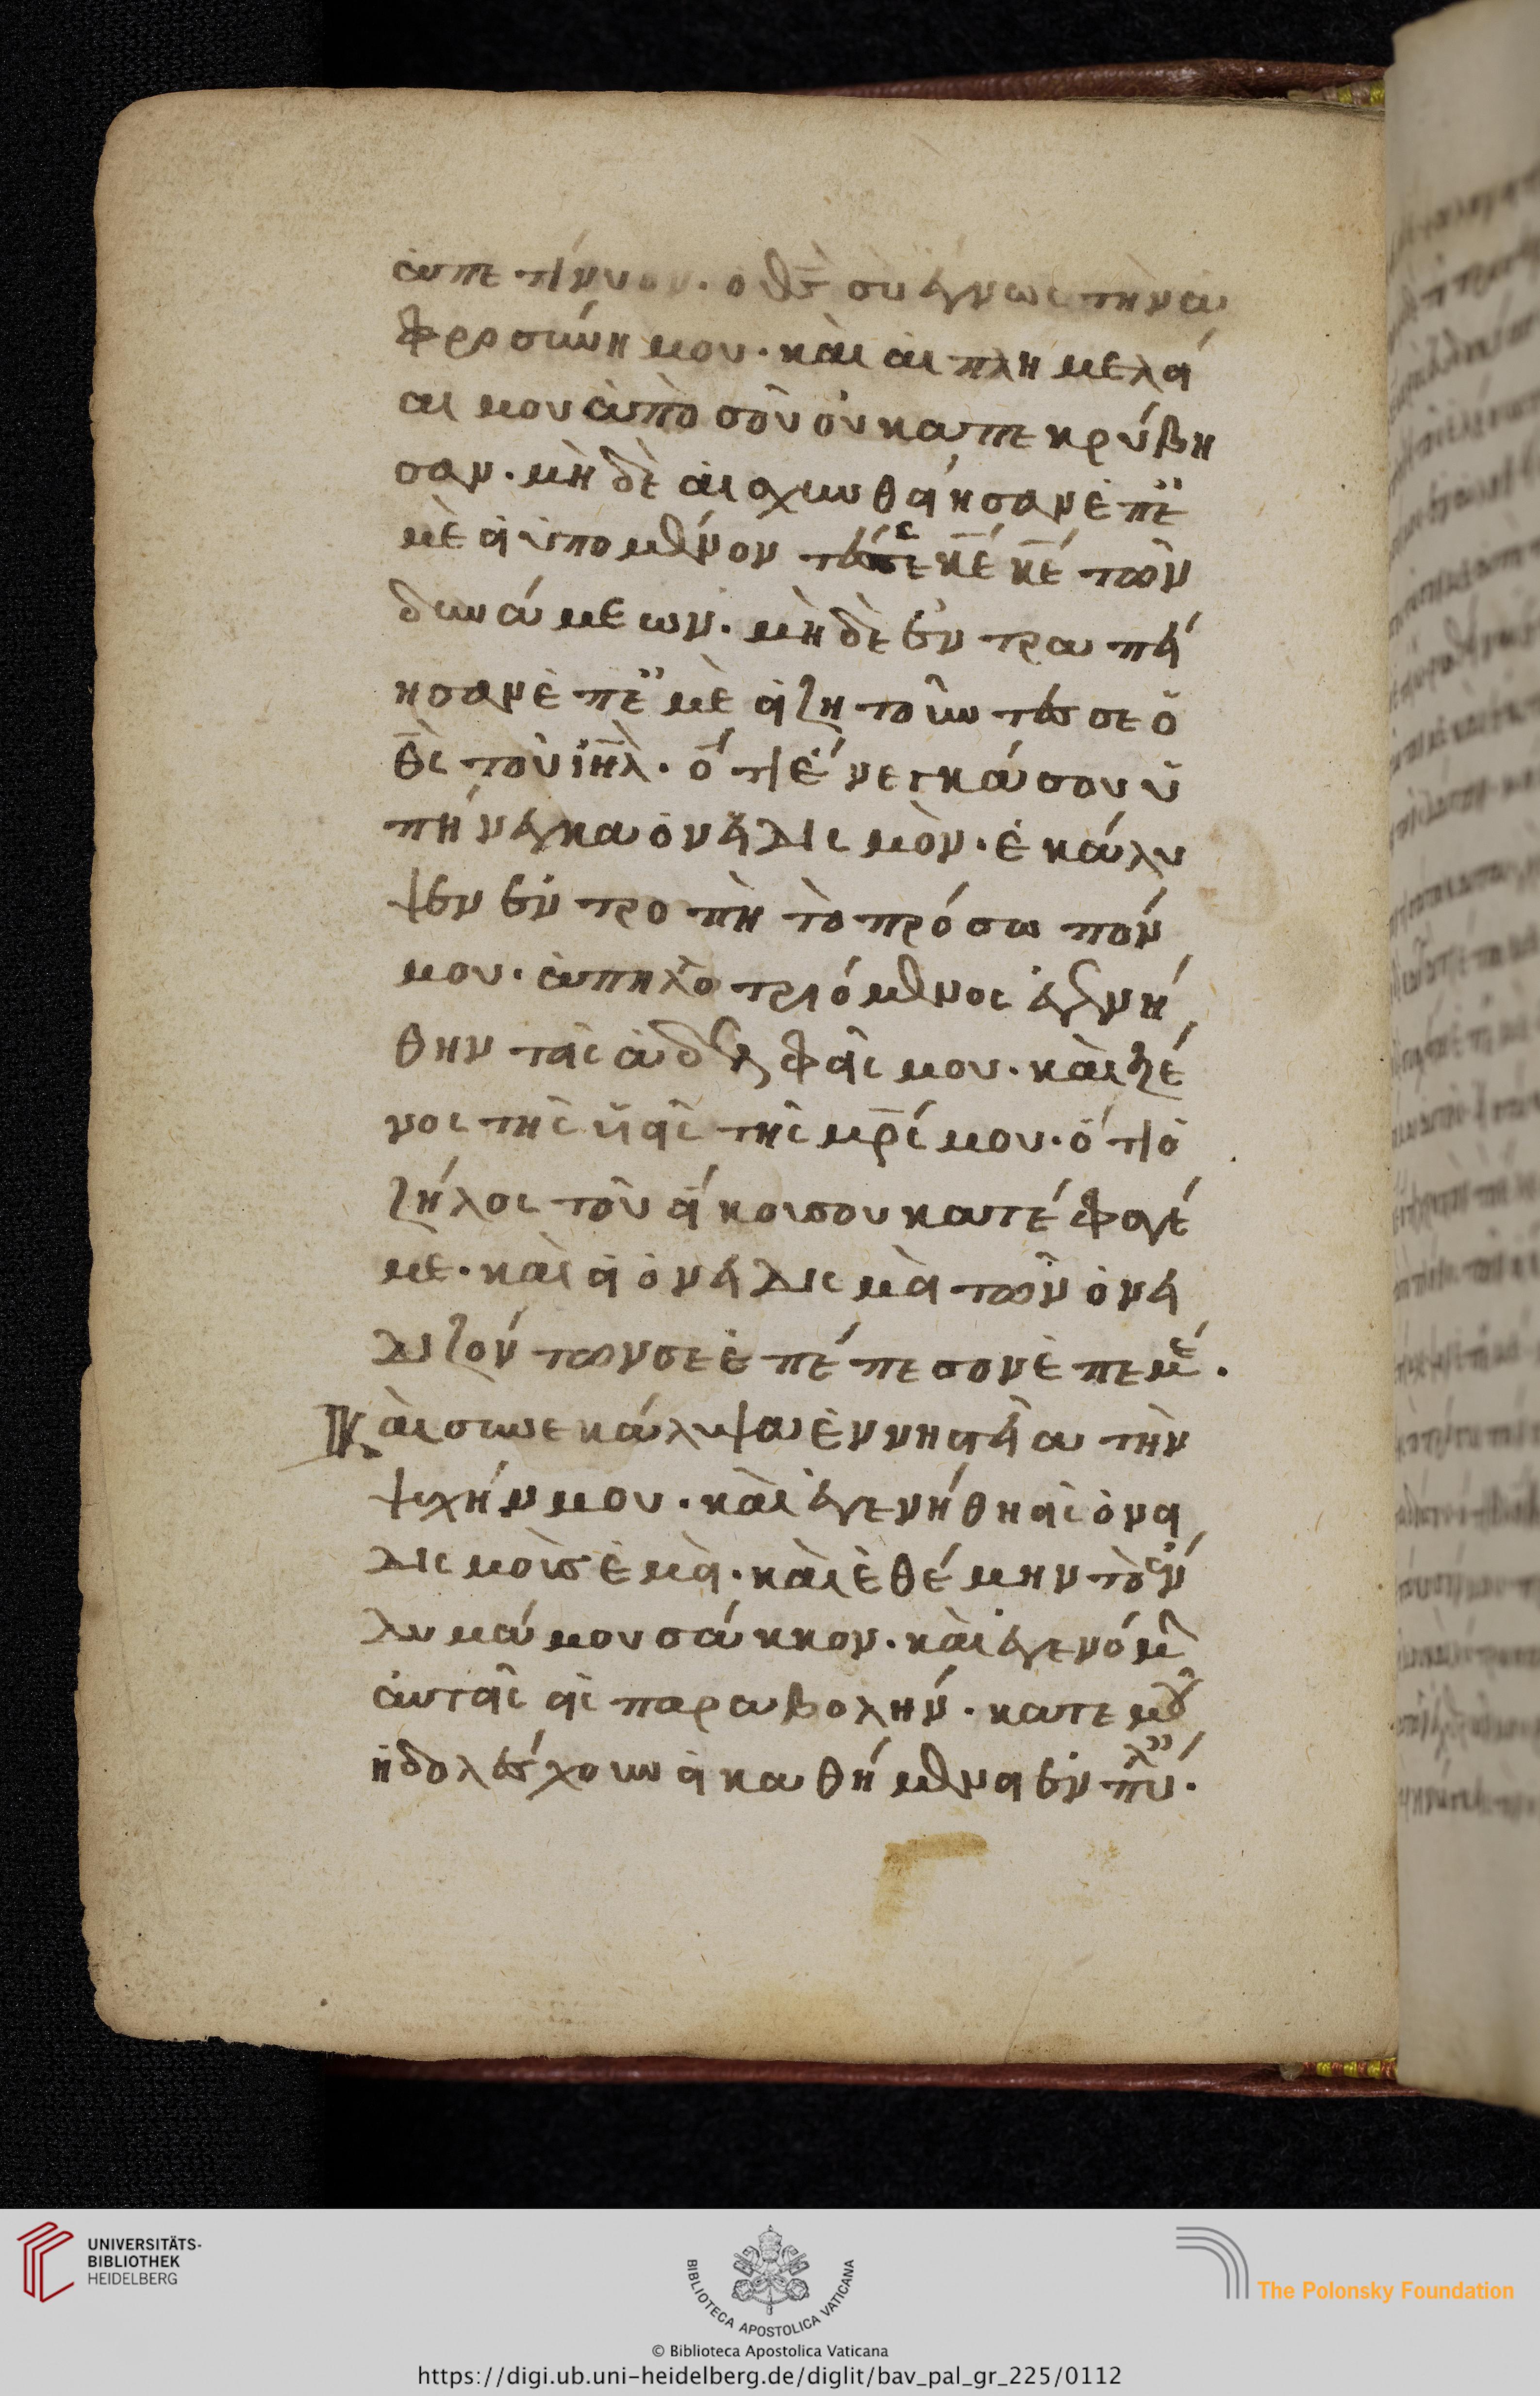 ἀπετίνυον· ὁ θς̅ σὺ ἔγνως τὴν ἀ
φροσύνη μου· καὶ αἱ πλημελεί
αι μου ἀπὸ σοῦ οὐκ ἀπεκρύβη
σαν· μὴ δὲ αἰσχυνθείησαν ἐπε
μὲ εἱ ὑπομένοντές σε κ̅έ κ̅έ τῶν
δυνάμεων· μὴ δὲ ἐντραπεί
ησαν ἐπε μὲ εἱ ζητοῦντές σε ὁ
θ̅ς τοῦ ἰη̅λ· ὅτι ἕνεκά σου ὑ
πήνεγκα ὀνειδισμὸν· ἐκάλυ
ψεν ἐντροπὴ τὸ πρόσωπόν
μου· ἀπηλοτριόμενος ἐγενή
θην τοῖς ἀδελφοῖς μου· καὶ ξέ
νος τῆς ὑοῖς τῆς μρ̅ς μου· ὅτι ὁ
ζήλος τοῦ οἴκου σου κατέφαγέ
με· καὶ εἱ ὀνειδισμοὶ τῶν ὀνει
διζόντων σε ἐπέπεσον ἐπεμέ·
Καὶ συνεκάλυψα ἐν νηστεία τὴν
ψυχήν μου· καὶ ἐγενήθη εἰς ὀνει
δισμοὺς ἐμοὶ· καὶ ἐθέμην τὸ ἔν
δυμά μου σάκκον· καὶ ἐγενόμ
αὐτοῖς εἰς παραβολήν· κατεμοῦ
ἠδολέσχουν εἱ καθήμενοι ἐν πύλ·
UNIVERSITÄTS-
BIBLIOTHEK
HEIDELBERG
BIBLIOTECA APOSTOLICA VATICANA
The Polonsky Foundation
© Biblioteca Apostolica Vaticana
https://digi.ub.uni-heidelberg.de/diglit/bav_pal_gr_225/0112